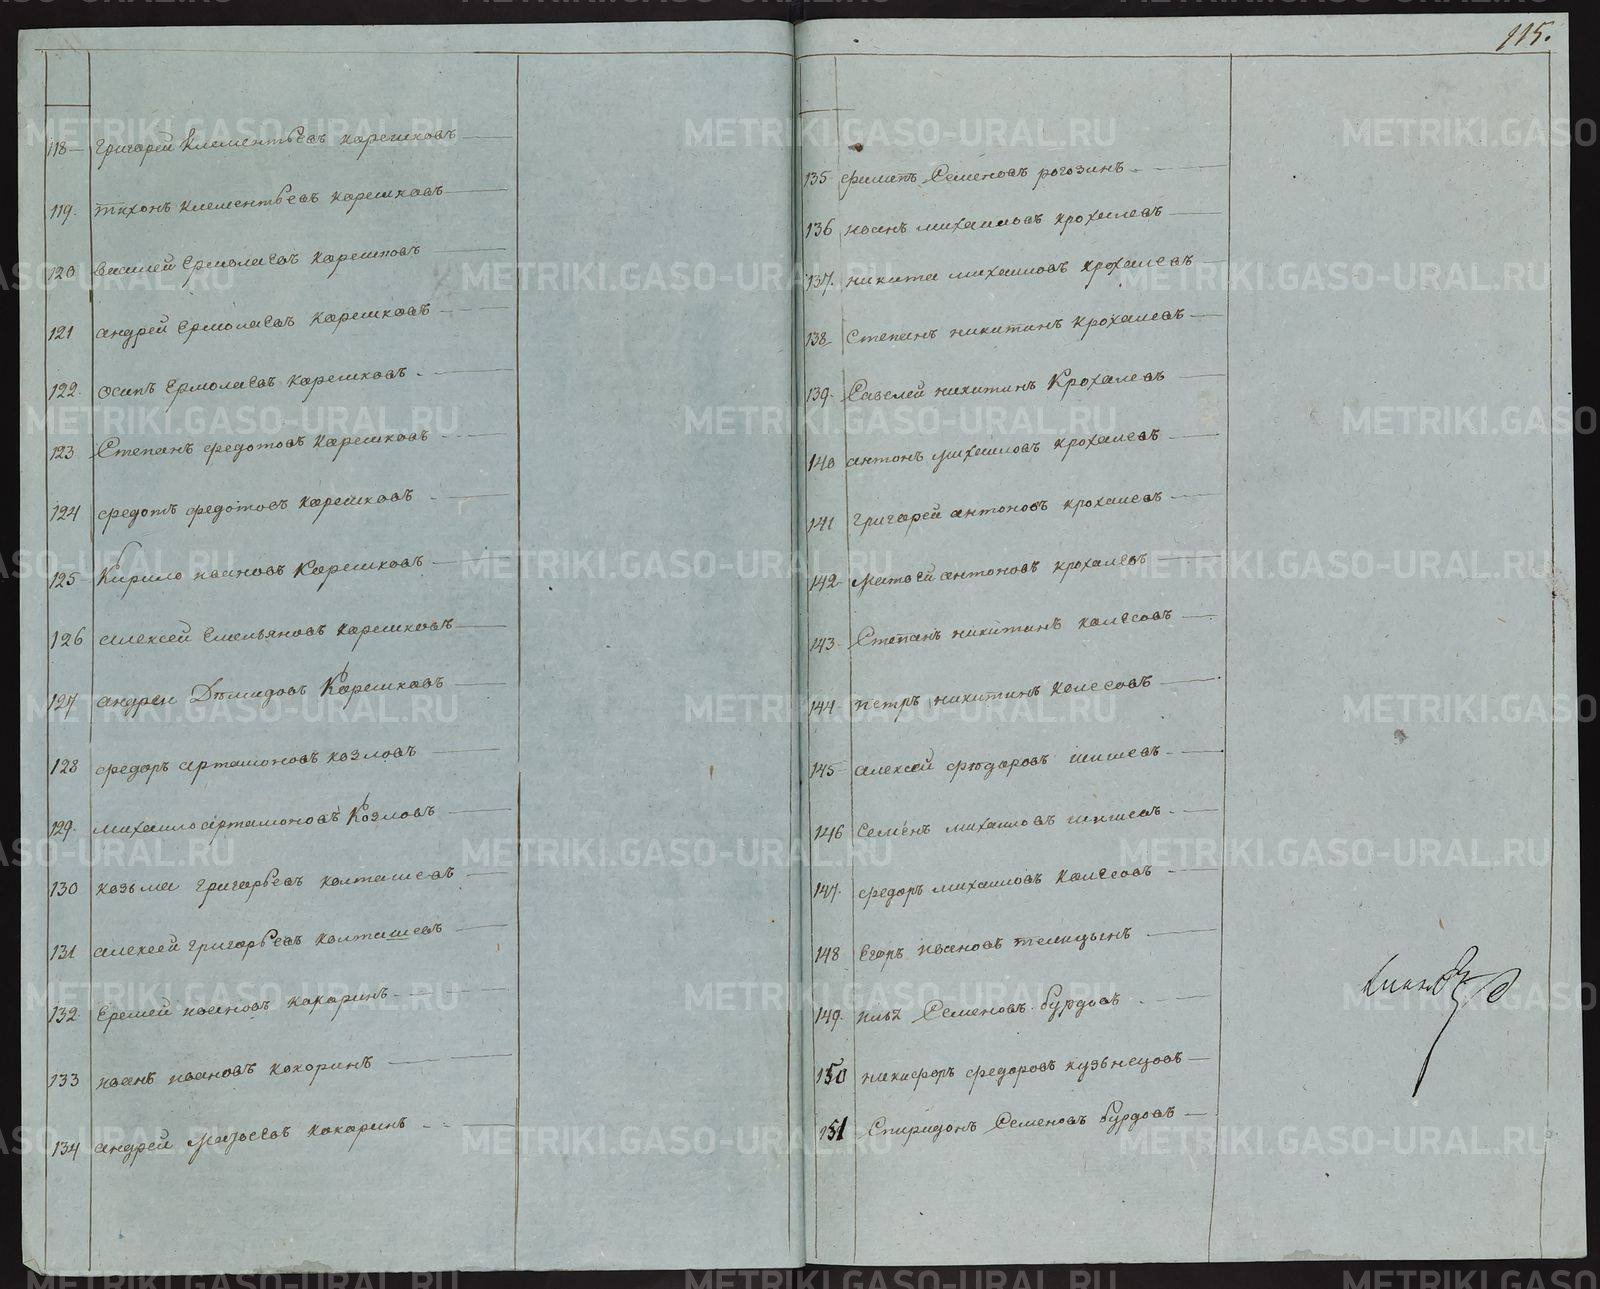 115.
118 Григорей Клементьевъ Карешковъ
119. Тихонъ Клементьевъ Карешковъ
120 Василей Ермолаевъ Карешковъ
121 андрей Ермолаевъ Карешковъ
122. осипъ Ермолаевъ Карешковъ
123 Степанъ федотовъ Карешковъ
124 федотъ федотовъ Карешковъ
125 Кирило ивановъ Карешковъ
126 алексей Емельяновъ Карешковъ
127 андреи Демидовъ Карешковъ
128 федоръ артамоновъ козловъ
129. михаило артамоновъ Козловъ
130 козьма григорьевъ колташевъ
131 алексей григорьевъ колташевъ
132. Еремей ивановъ кокаринъ
133 иванъ ивановъ кокоринъ
134 андрей Матвеевъ кокаринъ
135 филатъ Семеновъ рогозинъ
136 иванъ михаиловъ крохалевъ
137. никита михаиловъ крохалевъ
138 Степанъ никитинъ крохалевъ
139. Савелей никитинъ Крохалевъ
140 антонъ михаиловъ крохалевъ
141 григорей антоновъ крохалевъ
142 матвей антоновъ крохалевъ
143 Степанъ никитинъ колесовъ
144 петръ никитинъ колесовъ
145 алексей федоровъ шишевъ
146 Семенъ михаиловъ шишевъ
147. федоръ михаиловъ колесовъ
148 Егоръ ивановъ телицынъ
149. илья Семеновъ бурдовъ
150 никифоръ федоровъ кузьнецовъ
151 Спиридонъ Семеновъ бурдовъ
METRIKI.GASO-URAL.RU